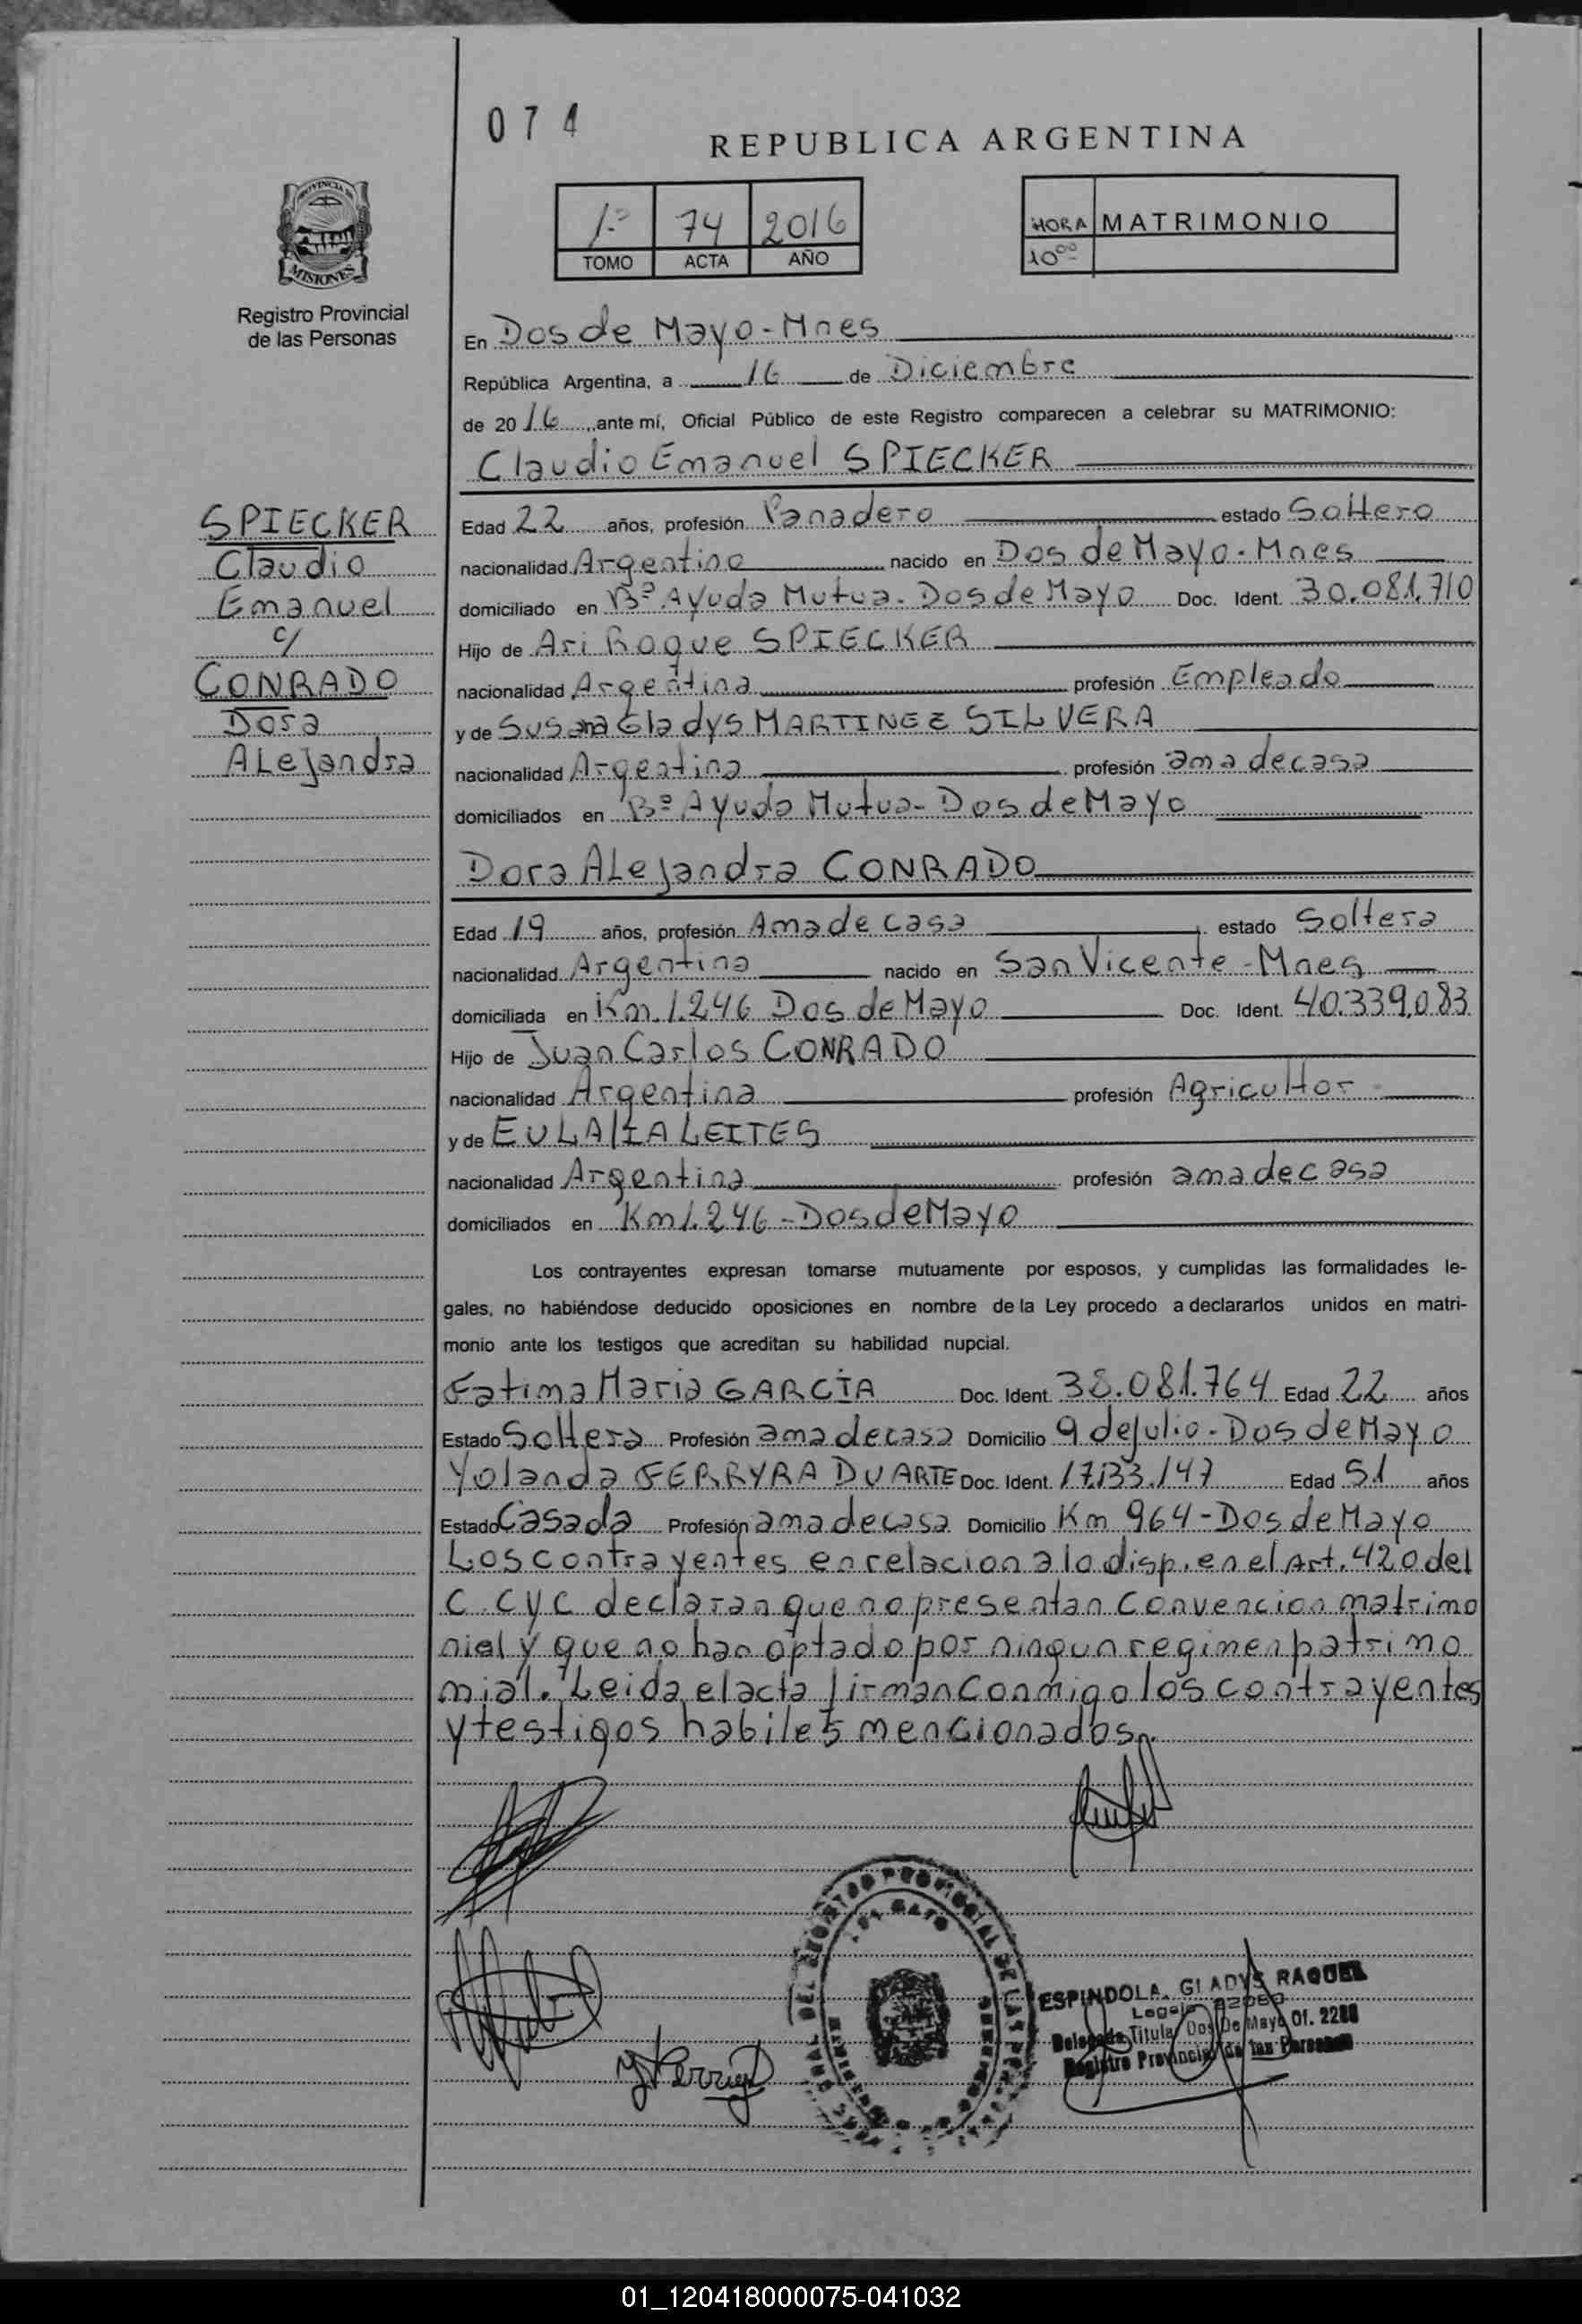 074
REPUBLICA ARGENTINA
PROVINCIA DE
MISIONES
Registro Provincial
de las Personas
1º 74 2016
TOMO ACTA AÑO
HORA MATRIMONIO
10⁰⁰
En Dos de Mayo - Mnes
República Argentina, a 16 de Diciembre
de 2016, ante mí, Oficial Público de este Registro comparecen a celebrar su MATRIMONIO:
Claudio Emanuel SPIECKER
SPIECKER
Claudio
Emanuel
c/
CONRADO
Dora
ALejandra
Edad 22 años, profesión Panadero estado Soltero
nacionalidad Argentino nacido en Dos de Mayo - Mnes
domiciliado en Bº Ayuda Mutua - Dos de Mayo Doc. Ident. 30.081.710
Hijo de Ari Roque SPIECKER
nacionalidad Argentina profesión Empleado
y de Susana Gladys MARTINEZ SILVERA
nacionalidad Argentina profesión ama de casa
domiciliados en Bº Ayuda Mutua - Dos de Mayo
Dora ALejandra CONRADO
Edad 19 años, profesión Ama de casa estado Soltera
nacionalidad Argentina nacido en San Vicente - Mnes
domiciliada en Km. 1.246 Dos de Mayo Doc. Ident. 40.339.083
Hijo de Juan Carlos CONRADO
nacionalidad Argentina profesión Agricultor
y de EULALIA LEITES
nacionalidad Argentina profesión ama de casa
domiciliados en Km 1.246 - Dos de Mayo
Los contrayentes expresan tomarse mutuamente por esposos, y cumplidas las formalidades le-
gales, no habiéndose deducido oposiciones en nombre de la Ley procedo a declararlos unidos en matri-
monio ante los testigos que acreditan su habilidad nupcial.
Fatima Maria GARCIA Doc. Ident. 38.081.764 Edad 22 años
Estado Soltera Profesión ama de casa Domicilio 9 de Julio - Dos de Mayo
Yolanda FERRYRA DUARTE Doc. Ident. 17.133.147 Edad 51 años
Estado Casada Profesión ama de casa Domicilio Km 964 - Dos de Mayo
Los contrayentes en relacion a lo disp. en el Art. 420 del
C. CyC declaran que no presentan Convencion matrimo
nial y que no han optado por ningun regimen patrimo
nial. Leida el acta firman Conmigo los contrayentes
y testigos habiles mencionados.
ESPINDOLA, GLADYS RAQUEL
Delegada Titular Dos De Mayo Of. 2288
Registro Provincial de las Personas
01_120418000075-041032